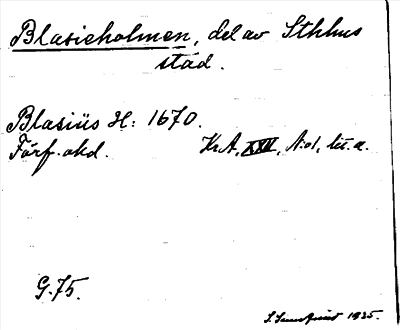 Blasieholmen, del av Sthlms
stad.
Blasiüs H: 1670.
Förf. okd. KrA, XXII, N:o1, lit. a.
G.75.
1935.